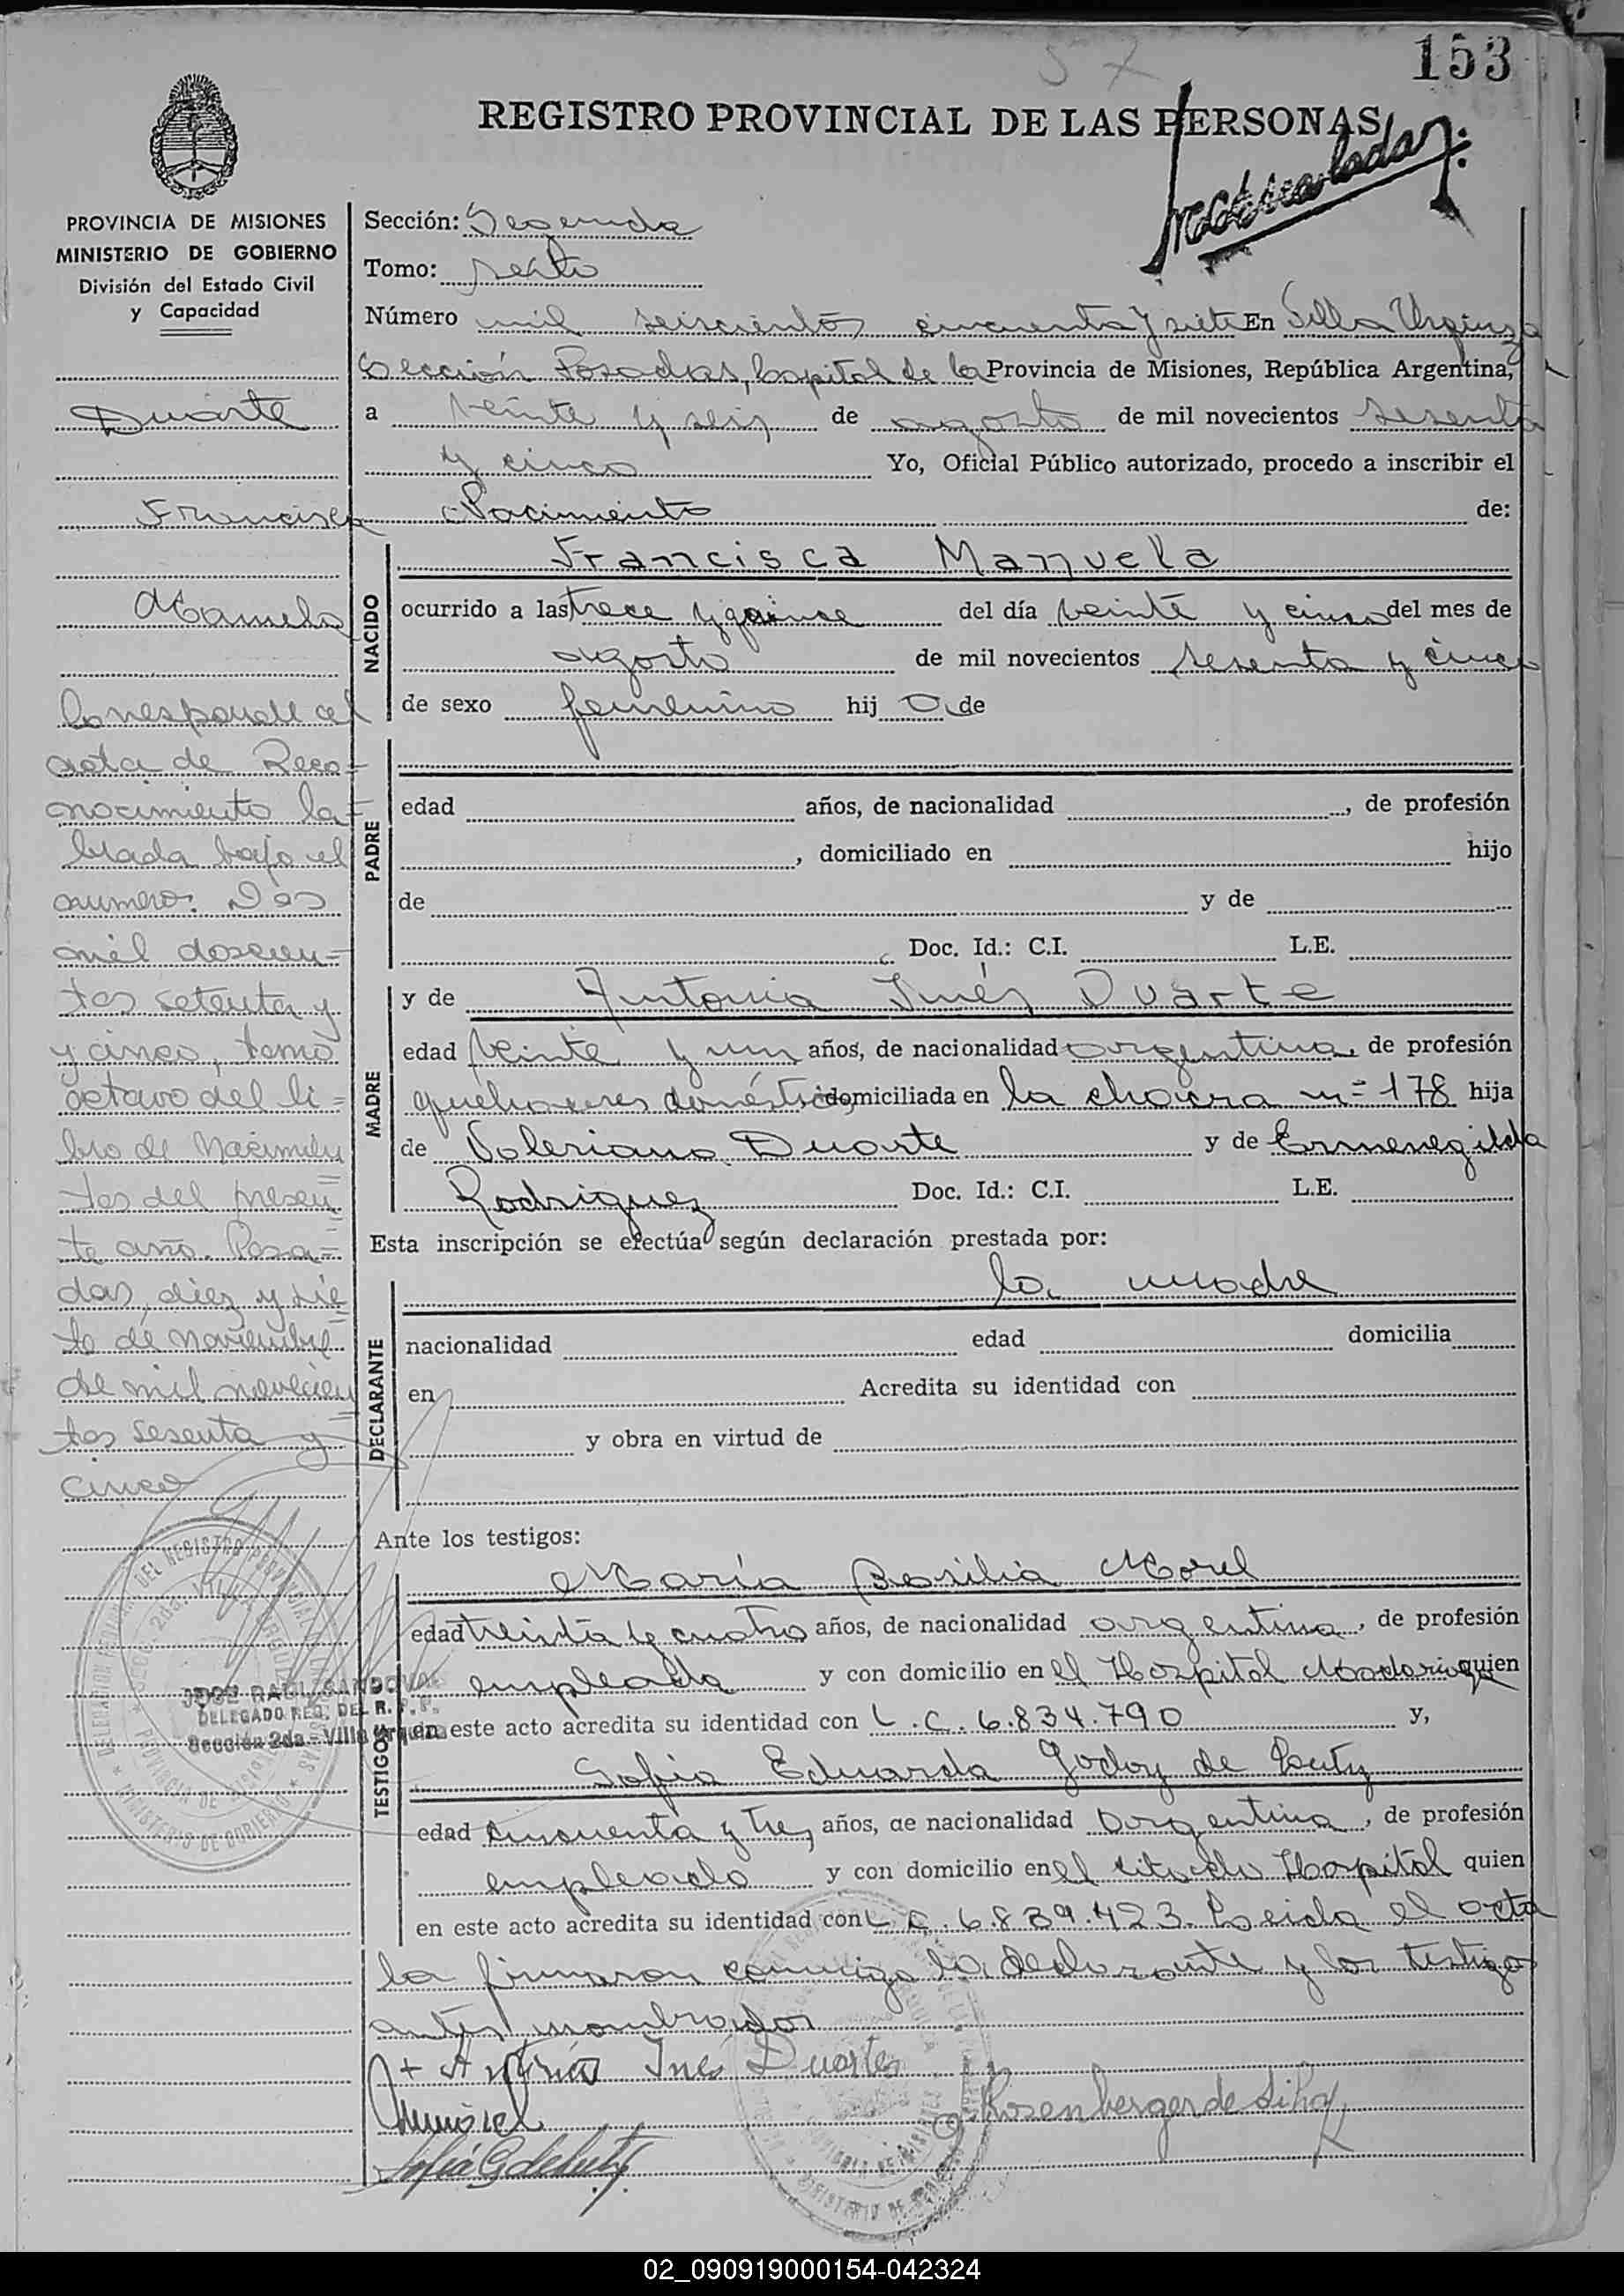 153
REGISTRO PROVINCIAL DE LAS PERSONAS
PROVINCIA DE MISIONES
MINISTERIO DE GOBIERNO
División del Estado Civil
y Capacidad
Duarte
Francisca
Manuela
Corresponde al
acta de Reco=
nocimiento la=
brada bajo el
numero: Dos
mil doscien=
tos setenta y
y cinco, tomo
octavo del li=
bro de Nacimien
tos del presen
te año. Posa=
das, diez y sie
te de noviembre
de mil novecien
tos sesenta y
cinco
JOSE RAUL SANDOVAL
DELEGADO REG. DEL R. P. P.
Sección 2da - Villa Urquiza
Sección: Segunda
Tomo: sexto
Número mil seiscientos cincuenta y siete En Villa Urquiza
Sección Posadas, Capital de la Provincia de Misiones, República Argentina,
a veinte y seis de agosto de mil novecientos sesenta
y cinco Yo, Oficial Público autorizado, procedo a inscribir el
Nacimiento de:
NACIDO
Francisca Manuela
ocurrido a las trece y quince del día veinte y cinco del mes de
agosto de mil novecientos sesenta y cinco
de sexo femenino hij a de
PADRE
edad años, de nacionalidad , de profesión
, domiciliado en hijo
de y de
Doc. Id.: C.I. L.E.
MADRE
y de Antonia Inés Duarte
edad veinte y un años, de nacionalidad argentina, de profesión
quehaceres domésticos, domiciliada en la chacra nº 178 hija
de Valeriano Duarte y de Ermenegilda
Rodriguez Doc. Id.: C.I. L.E.
Esta inscripción se efectúa según declaración prestada por:
DECLARANTE
la madre
nacionalidad edad domicilia
en Acredita su identidad con
y obra en virtud de
Ante los testigos:
TESTIGOS
María Basilia Morel
edad treinta y cuatro años, de nacionalidad argentina, de profesión
empleada y con domicilio en el Hospital Madariaga quien
en este acto acredita su identidad con L.C. 6.834.790 y,
Sofia Eduarda Godoy de
edad cincuenta y tres años, de nacionalidad argentina, de profesión
empleada y con domicilio en el citado Hospital quien
en este acto acredita su identidad con L.C. 6.839.423. Leida el acta
la firmaron conmigo la declarante y los testigos
antes nombrados
+ Antonia Inés Duarte
Rosenberger de
02_090919000154-042324